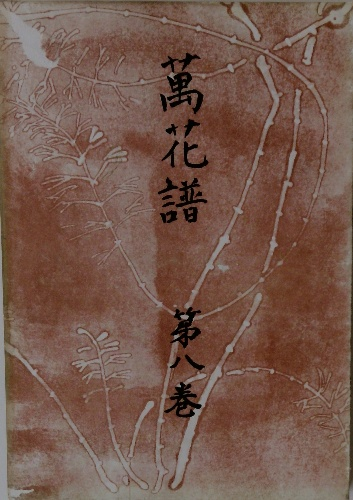 萬花譜
第八巻